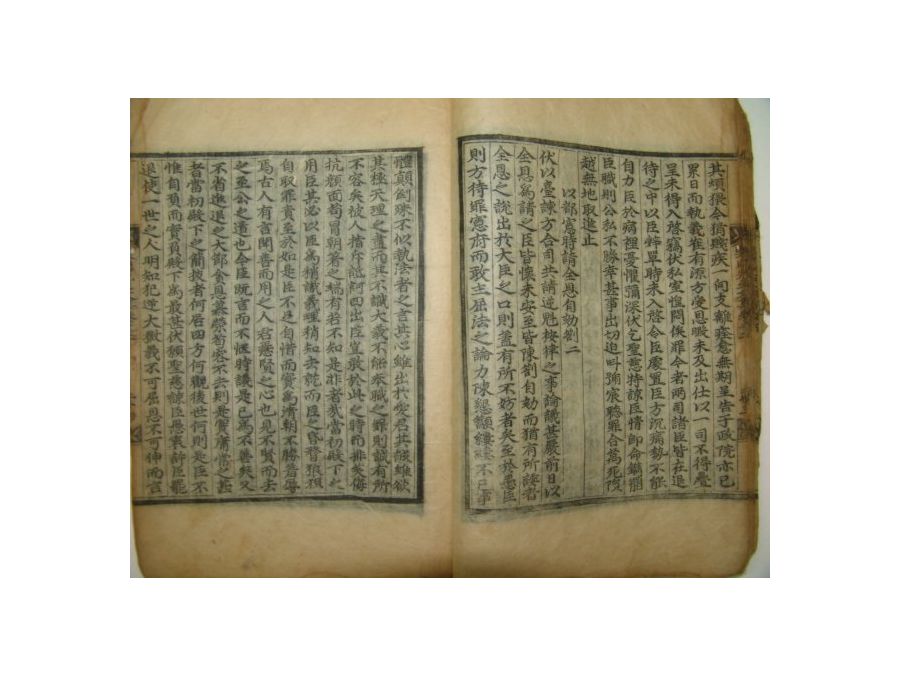 其煩猥今猶賤疾一向支離痊愈無期呈告于政院亦已
累日而執義崔有源方受恩暇未及出仕以一司不得疊
呈未得入啓竊伏私室惶悶俟罪今者兩司諸臣皆在退
待之中以臣蜉單時未入啓今臣處置臣方沉病勢不能
自力臣於病裡憂懼彌深伏乞聖慈特諒臣情卽命鐫
臣職則公私不勝幸甚事出切迫叫瀰宸聰罪合萬死隕
越無地取進止
以都憲時請全恩自劾劄二
伏以臺諫方合司共請逆魁按律之事論議甚嚴前日以
全恩爲請之臣皆懷未安至皆陳劄自劾而猶有所諉者
全恩之說出於大臣之口則蓋有所不妨者矣至於愚臣
則方待罪憲府而敢主屈法之論力陳懇顬縷縷不已事
體顚倒殊不似執法者之言其心雖出於愛君其誠雖欲
其極天理之盡而其不識大義不能奉職之罪則誠有所
不容矣被人指斥詆訶四出臣豈敢於此之時而排羙侮
抗顏面苟冒朝著之端有若不知是非者哉當初殿下之
用臣其必以臣爲稍識義理稍知去就而臣之昏瞀狼狽
自取罪責至於如是臣不足自惜而實爲淸朝不勝昔辱
焉古人有言聞善而用之人君急賢之心也見不賢而去
之至公之道也今臣旣言而不愜時議是已爲不善矣又
不省進退之大節含恩慕榮苟容不去則是實庸常之甚
者當初殿下之簡拔者何居四方何觀後世何則是臣不
惟自負而實負殿下爲最甚伏願聖慈諒臣愚衷許臣罷
退使一世之人明知犯逆大獄義不可屈恩不可伸而言